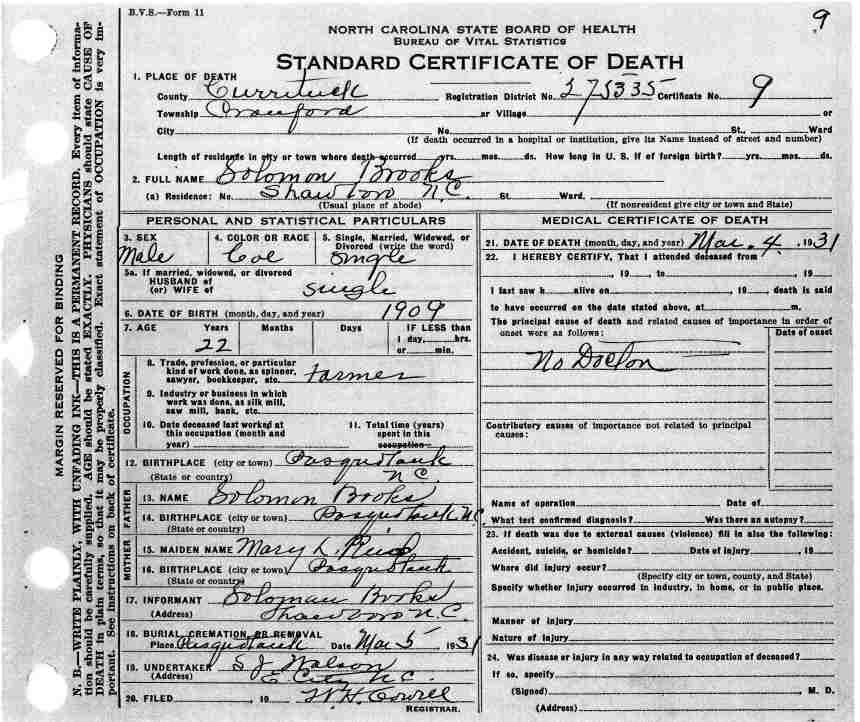 B.V.S.—Form 11
9
NORTH CAROLINA STATE BOARD OF HEALTH
BUREAU OF VITAL STATISTICS
STANDARD CERTIFICATE OF DEATH
1. PLACE OF DEATH
County Currituck Registration District No. 275335 Certificate No. 9
Township Crawford or Village or
City No. St., Ward
(If death occurred in a hospital or institution, give its Name instead of street and number)
Length of residence in city or town where death occurred yrs. mos. ds. How long in U. S. if of foreign birth? yrs. mos. ds.
2. FULL NAME Solomon Brooks
(a) Residence: No. Shawboro N.C. St. Ward.
(Usual place of abode) (If nonresident give city or town and State)
PERSONAL AND STATISTICAL PARTICULARS
3. SEX
Male
4. COLOR OR RACE
Col
5. Single, Married, Widowed, or
Divorced (write the word)
Single
5a. If married, widowed, or divorced
HUSBAND of
(or) WIFE of single
6. DATE OF BIRTH (month, day, and year) 1909
7. AGE Years Months Days IF LESS than
1 day, hrs.
22 or min.
OCCUPATION
8. Trade, profession, or particular
kind of work done, as spinner,
sawyer, bookkeeper, etc. Farmer
9. Industry or business in which
work was done, as silk mill,
saw mill, bank, etc.
10. Date deceased last worked at
this occupation (month and
year)
11. Total time (years)
spent in this
occupation
12. BIRTHPLACE (city or town) Pasquotank
(State or country) N C
FATHER
13. NAME Solomon Brooks
14. BIRTHPLACE (city or town) Pasquotank N.C.
(State or country)
MOTHER
15. MAIDEN NAME Mary L.
16. BIRTHPLACE (city or town) Pasquotank
(State or country)
17. INFORMANT Soloman Brooks
(Address) Shawboro N.C.
18. BURIAL, CREMATION, OR REMOVAL
Place Pasquotank Date Mar 5 1931
19. UNDERTAKER S J Walson
E City N.C.
20. FILED 19 W.H. Cowell
REGISTRAR.
MEDICAL CERTIFICATE OF DEATH
21. DATE OF DEATH (month, day, and year) Mar. 4, 1931
22. I HEREBY CERTIFY, That I attended deceased from
, 19 , to , 19
I last saw h alive on , 19 death is said
to have occurred on the date stated above, at m.
The principal cause of death and related causes of importance in order of
onset were as follows:
Date of onset
No Doctor
Contributory causes of importance not related to principal
causes:
Name of operation Date of
What test confirmed diagnosis? Was there an autopsy?
23. If death was due to external causes (violence) fill in also the following:
Accident, suicide, or homicide? Date of injury , 19
Where did injury occur?
(Specify city or town, county, and State)
Specify whether injury occurred in industry, in home, or in public place.
Manner of injury
Nature of injury
24. Was disease or injury in any way related to occupation of deceased?
If so, specify
(Signed) , M. D.
(Address)
MARGIN RESERVED FOR BINDING
N. B.—WRITE PLAINLY, WITH UNFADING INK—THIS IS A PERMANENT RECORD. Every item of informa-
tion should be carefully supplied. AGE should be stated EXACTLY. PHYSICIANS should state CAUSE OF
DEATH in plain terms, so that it may be properly classified. Exact statement of OCCUPATION is very im-
portant. See instructions on back of certificate.